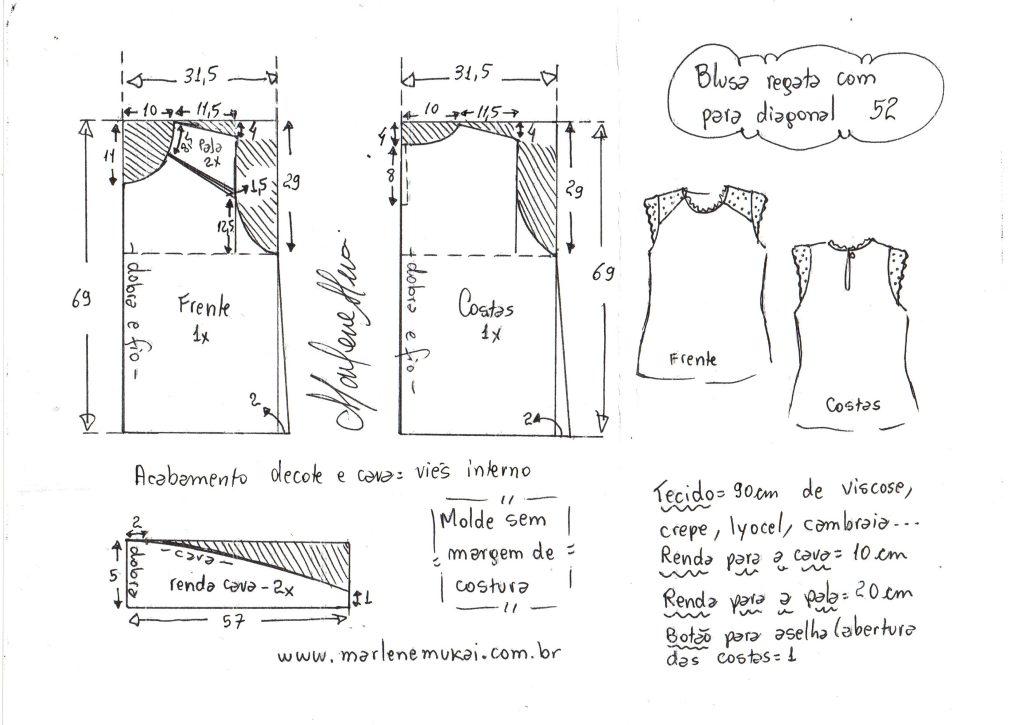 Blusa regata com
para diagonal 52
31,5
10
11,5
4
11
8
pala
2x
1,5
12,5
29
69
dobra e fio
Frente
1x
2
Marlene Mukai
31,5
10
11,5
4
4
8
29
69
dobra e fio
Costas
1x
2
Frente
Costas
Acabamento decote e cava= viés interno
2
5
dobra
cava
renda cava - 2x
1
57
Molde sem
margem de
costura
Tecido= 90cm de viscose,
crepe, lyocel, cambraia...
Renda para a cava= 10cm
Renda para a pala= 20cm
Botão para aselha (abertura
das costas=1
www.marlenemukai.com.br